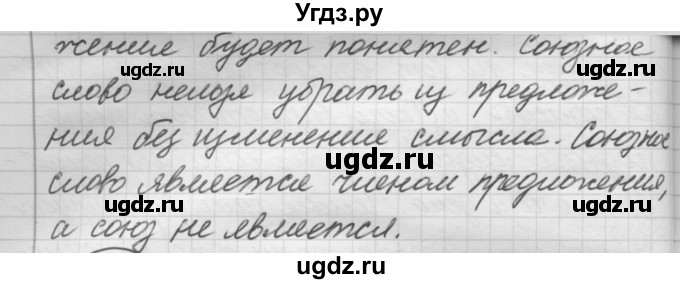 Угдз.ру
жение будет понятен. Союзное
ugdz.ru ugdz.ru
слово нельзя убрать из предложе-
ния без изменение смысла. Союзное
ugdz.ru
слово является членом предложения,
ugdz.ru ugdz.ru
а союз не является.
ugdz.ru